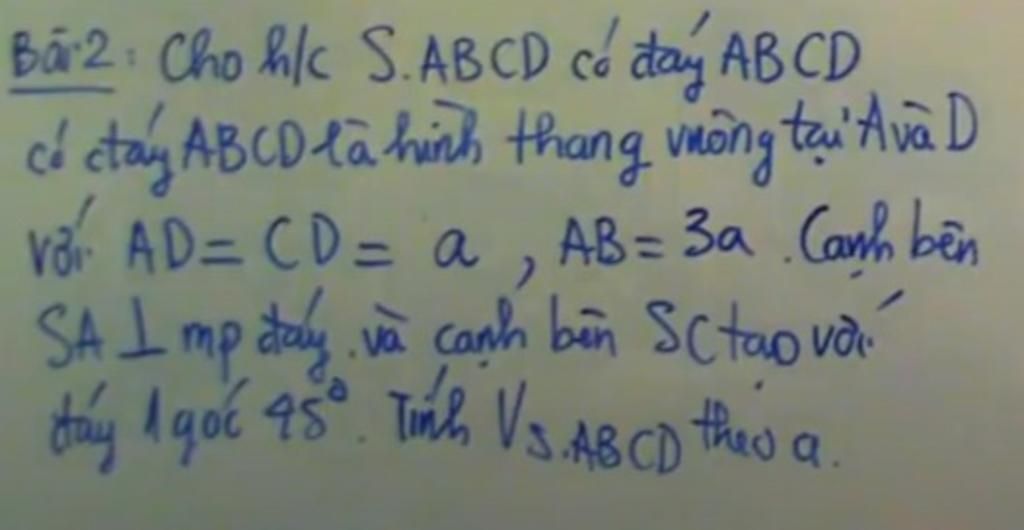 Bài 2: Cho h/c S.ABCD có đáy ABCD
có đáy ABCD là hình thang vuông tại A và D
với AD = CD = a, AB = 3a. Cạnh bên
SA ⊥ mp đáy và cạnh bên SC tạo với
đáy 1 góc 45°. Tính V_S.ABCD theo a.